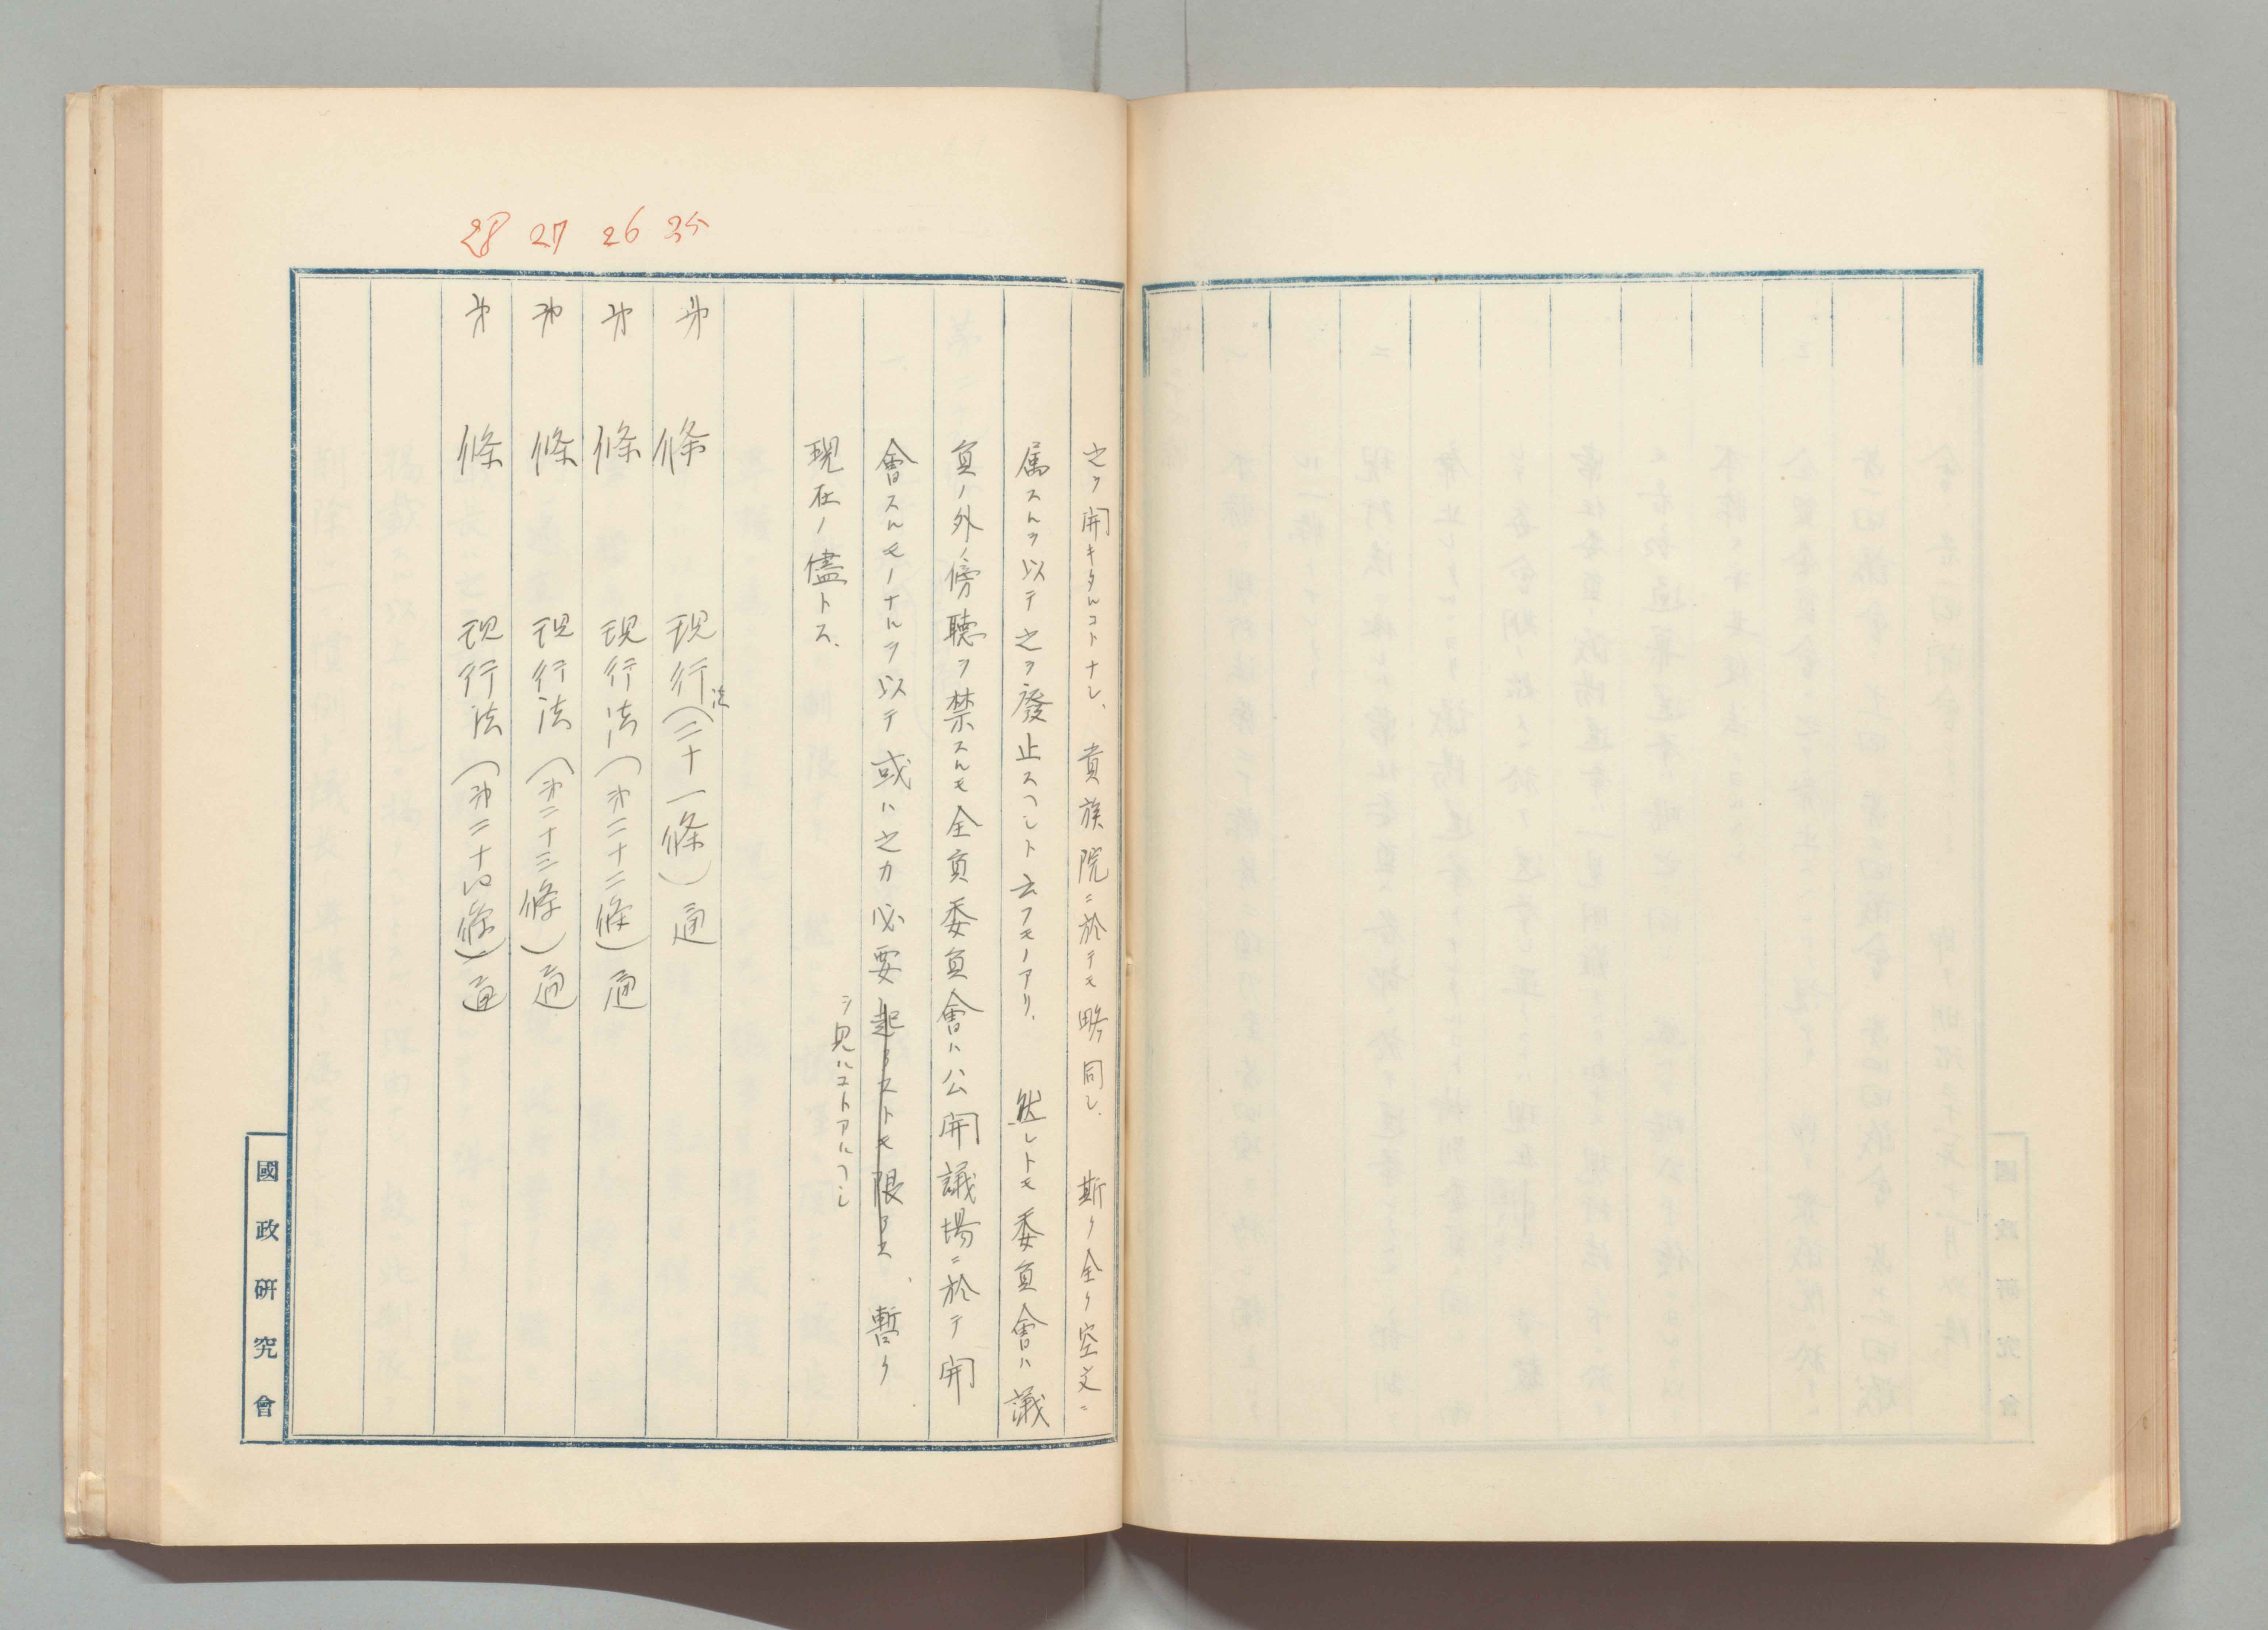 之ヲ開キタルコトナシ、貴族院ニ於テモ略同シ、斯ク全ク空文ニ
属スルヲ以テ之ヲ廢止スヘシト云フモノアリ、然レトモ委員會ハ議
員ノ外ノ傍聴ヲ禁スルモ全員委員會ハ公開議場ニ於テ開
會スルモノナルヲ以テ或ハ之カ必要起ラストモ限ラス、暫ク
ヲ見ルコトアルヘシ
現在ノ儘トス、
25
才 條 現行法(二十一條)通
26
才 條 現行法(才二十二條)通
27
才 條 現行法(才二十三條)通
28
才 條 現行法(才二十四條)通
國政研究會